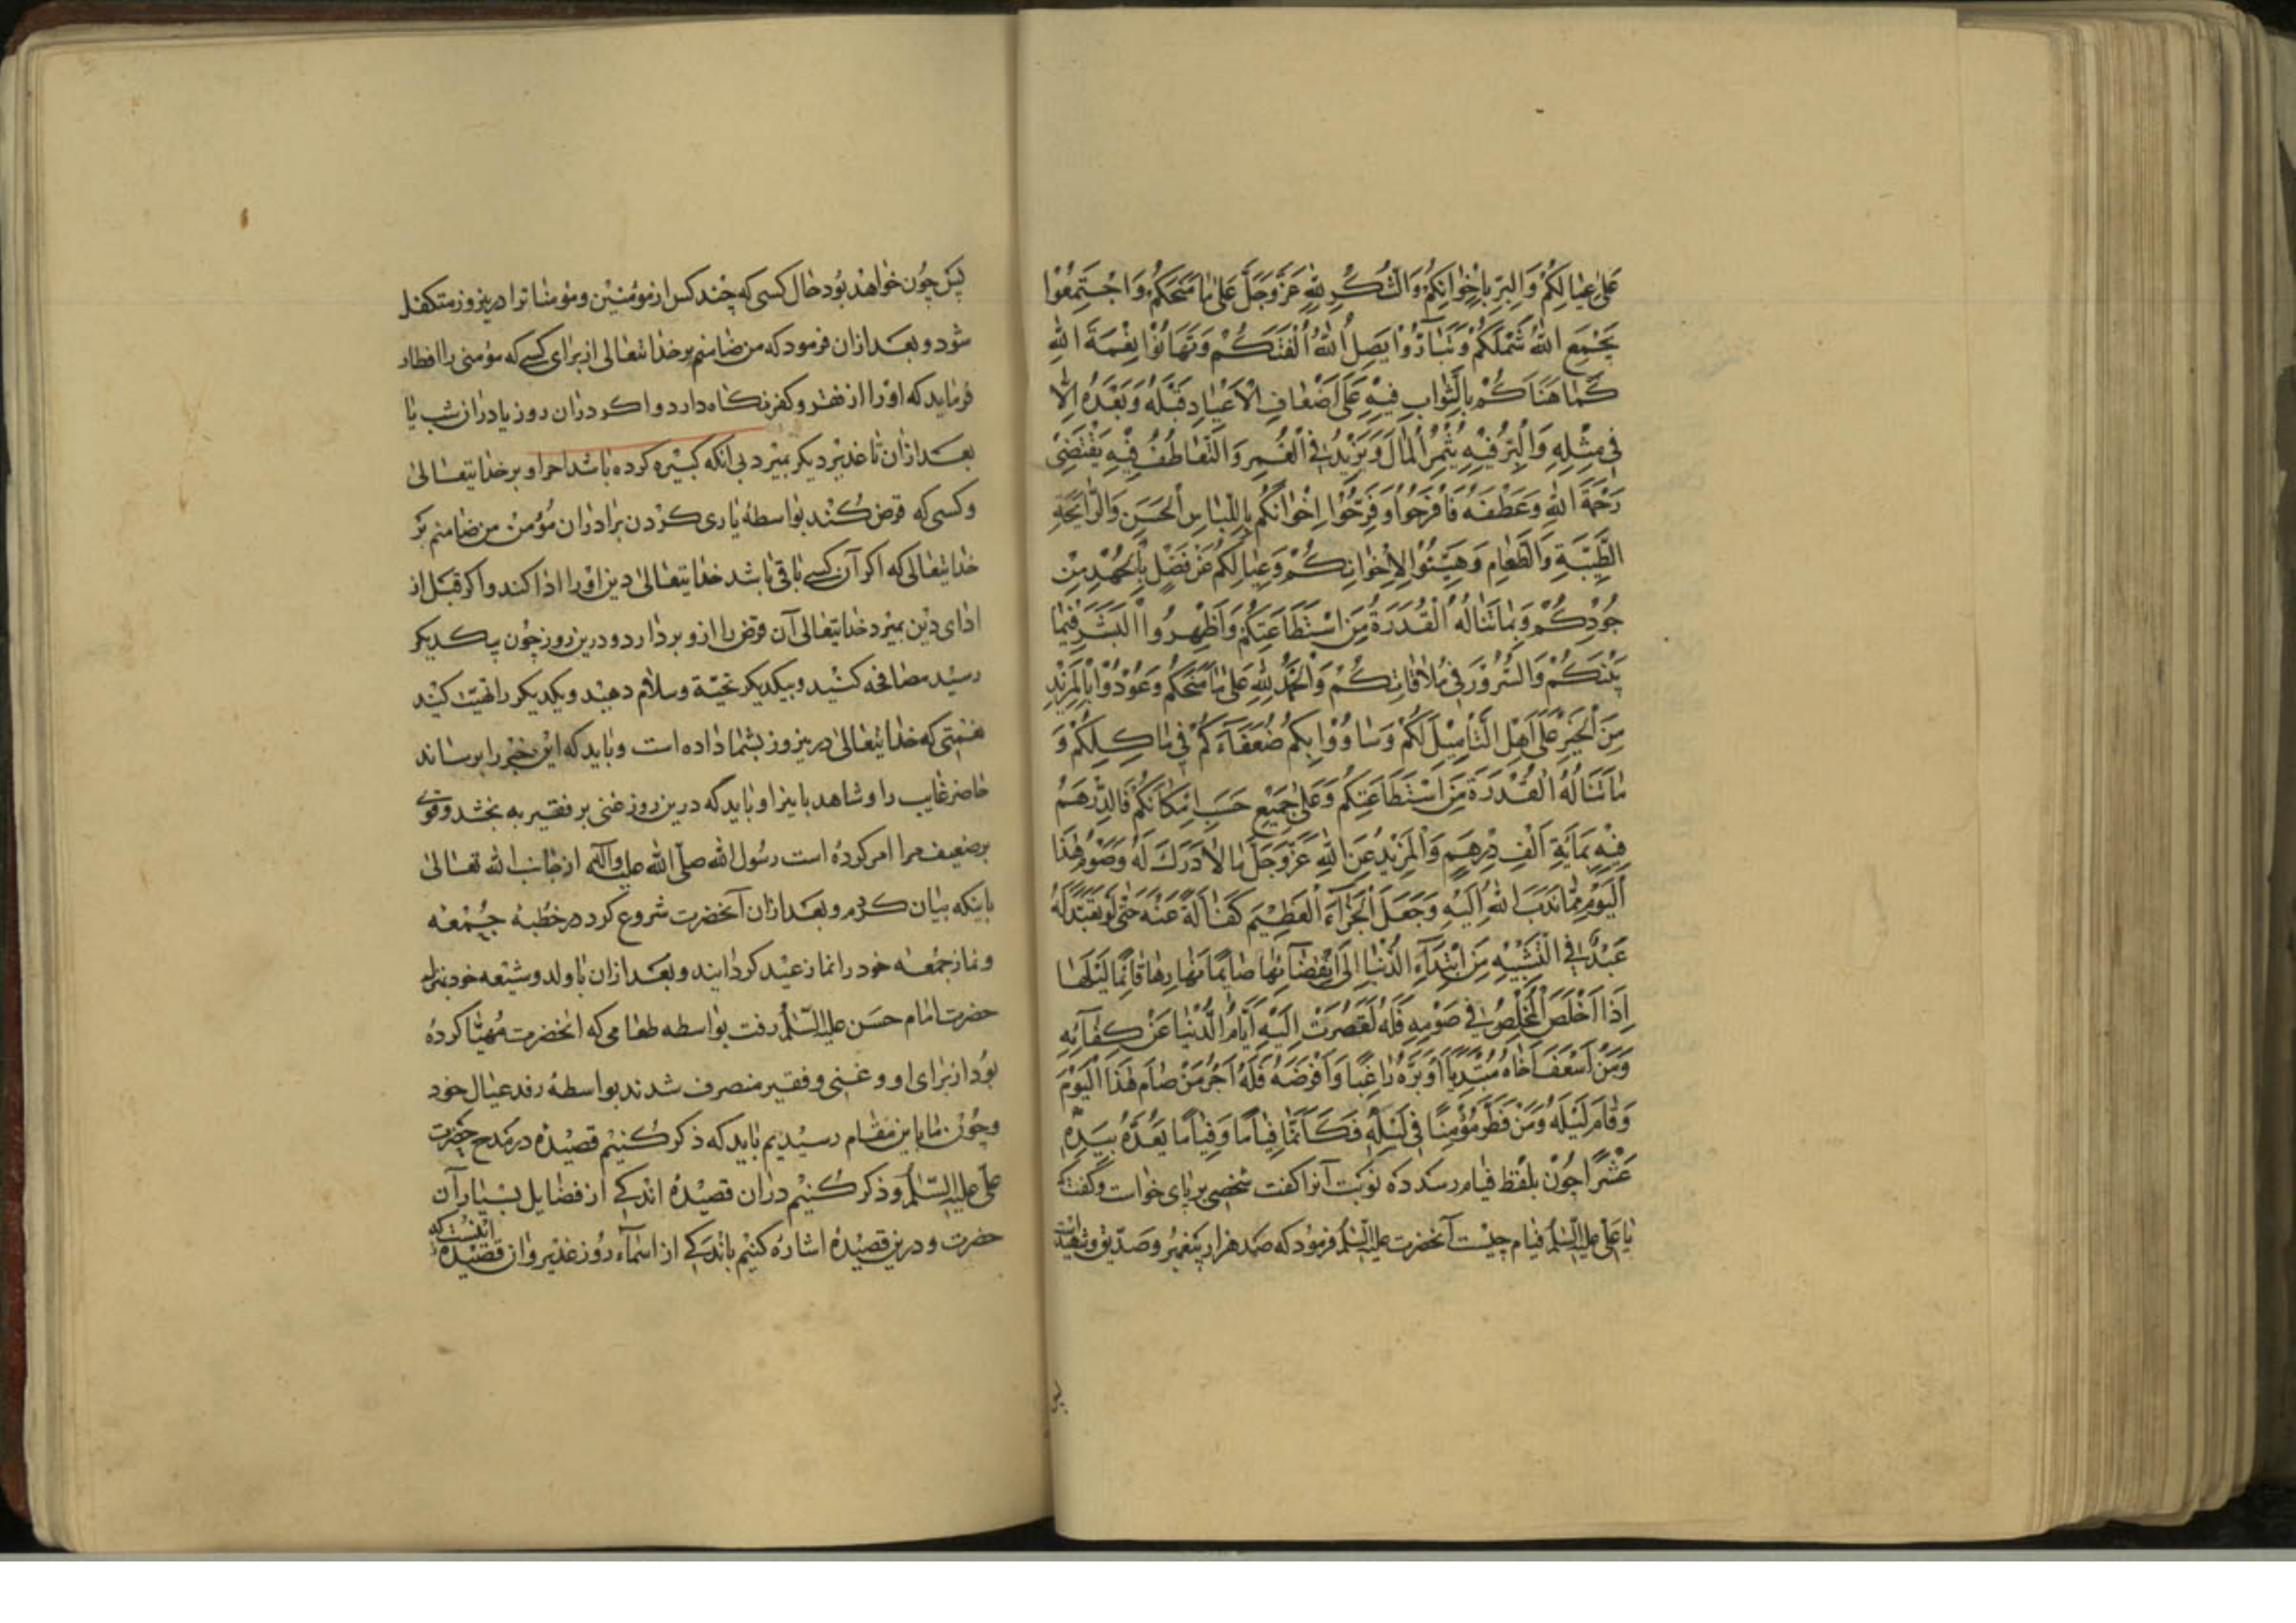 عَلىٰ عِيٰالِكُمْ وَالْبِرِّ بِاِخْوٰانِكُمْ وَالشُّكْرِ لِلّٰهِ عَزَّوَجَلَّ عَلىٰ مٰا مَنَحَكُمْ وَاجْتَمِعُوْا
يَجْمَعِ اللّٰهُ شَمْلَكُمْ وَتَبٰارُّوْا يَصِلِ اللّٰهُ اُلْفَتَكُمْ وَتَهٰانَوْا نِعْمَةَ اللّٰهِ
كَمٰا هَنَّاكُمْ بِالثَّوٰابِ فِيْهِ عَلىٰ اَضْعٰافِ الْاَعْيٰادِ قَبْلَهُ وَبَعْدَهُ اِلّٰا
فِيْ مِثْلِهِ وَالْبِرُّ فِيْهِ يُثْمِرُ الْمٰالَ وَيَزِيْدُ فِى الْعُمْرِ وَالتَّعٰاطُفُ فِيْهِ يَقْتَضِىْ
رَحْمَةَ اللّٰهِ وَعَطْفَهُ فَافْرَحُوْا وَفَرِّحُوْا اِخْوٰانَكُمْ بِاللِّبٰاسِ الْحَسَنِ وَالرّٰايِحَةِ
الطَّيِّبَةِ وَالطَّعٰامِ وَهَيِّئُوْا لِاِخْوٰانِكُمْ وَعِيٰالِكُمْ عَنْ فَضْلٍ بِالْجُهْدِ مِنْ
جُوْدِكُمْ وَبِمٰا تَنٰالُهُ الْقُدْرَةُ مِنَ اسْتِطٰاعَتِكُمْ وَاَظْهِرُوا الْبِشْرَ فِيْمٰا
بَيْنَكُمْ وَالسُّرُوْرَ فِيْ مُلٰاقٰاتِكُمْ وَالْحَمْدُ لِلّٰهِ عَلىٰ مٰا مَنَحَكُمْ وَعُوْدُوْا بِالْمَزِيْدِ
مِنَ الْخَيْرِ عَلىٰ اَهْلِ التَّأْمِيْلِ لَكُمْ وَسٰاوُوْا بِكُمْ ضُعَفٰآءَكُمْ فِيْ مٰاكِلِكُمْ وَ
مٰا تَنٰالُهُ الْقُدْرَةُ مِنَ اسْتِطٰاعَتِكُمْ وَعَلىٰ جَمِيْعِ حَسَبِ اِمْكٰانِكُمْ فَالدِّرْهَمُ
فِيْهِ بِمِايَةِ اَلْفِ دِرْهَمٍ وَالْمَزِيْدُ عَنِ اللّٰهِ عَزَّوَجَلَّ مٰا لٰا دَرَكَ لَهُ وَصَوْمُ هٰذَا
الْيَوْمِ مِمّٰا نَدَبَ اللّٰهُ اِلَيْهِ وَجَعَلَ الْجَزٰآءَ الْعَظِيْمَ كَفٰالَةً عَنْهُ حَتّٰى لَوْ تَعَبَّدَ لَهُ
عَبْدٌ فِى التَّشْبِيْهِ مِنِ ابْتِدٰآءِ الدُّنْيٰا اِلَى انْقِضٰآئِهٰا صٰايِمًا نَهٰارِهٰا قٰائِمًا لَيْلَهٰا
اِذٰا اَخْلَصَ الْمُخْلِصُ فِيْ صَوْمِهِ فَلَهُ لَقَصُرَتْ اِلَيْهِ اَيّٰامُ الدُّنْيٰا عَنْ كِفٰآئِهِ
وَمَنْ اَسْعَفَ اَخٰاهُ مُبْتَدِيًا اَوْ بَرَّهُ رٰاغِبًا وَاَقْرَضَهُ فَلَهُ اَجْرُ مَنْ صٰامَ هٰذَا الْيَوْمَ
وَقٰامَ لَيْلَهُ وَمَنْ فَطَّرَ مُؤْمِنًا فِيْ لَيْلِهِ فَكَاَنَّمٰا فِيٰامًا وَفِيٰامًا يَعُدُّهٰ بِيَدِهِ
عَشْرًا چون بلفظ فيام رسيد ده نوبت آنرا كفت شخصى بر پاى خواست و كفت كه
يا على عليه السلام فيام چيست آنحضرت عليه السلام فرمود كه صد هزار پيغمبر و صديق و شهيد است
پس چون خواهد بود حال كسى كه چند كس از مؤمنين و مؤمنات را درين روز متكفل
شود و بعد ازان فرمود كه من ضامنم بر خدايتعالى از براى كسى كه مؤمنى را افطار
فرمايد كه او را از فقر و كفر نكاه دارد و اكر دران روز يا دران شب يا
بعد ازان تا غدير ديكر بميرد بى آنكه كبيره كرده باشد اجر او بر خدايتعالى
و كسى كه قرض كند بواسطۀ يارى كردن برادران مؤمن من ضامنم بر
خدايتعالى كه اكر آن كسى باقى باشد خدايتعالى دين او را ادا كند و اكر قبل از
اداى دين بميرد خدايتعالى آن قرض را ازو بردارد و درين روز چون بيكديكر
رسيد مصافحه كنيد و بيكديكر تحيّة و سلام دهيد و يكديكر را تهنيت كنيد
بنعمتى كه خدايتعالى درين روز بشما داده است و بايد كه اين خبر را برساند
حاضر غايب را و شاهد باينرا و بايد كه درين روز غنى بر فقير به بخشد و قوى
بر ضعيف مرا امر كرده است رسول الله صلى الله عليه وآله از جانب الله تعالى
باينكه بيان كردم و بعد ازان آنحضرت شروع كرد در خطبۀ جمعه
و نماز جمعه خود را نماز عيد كردانيد و بعد ازان با ولد و شيعه خود بمنزل
حضرت امام حسن عليه السلام رفت بواسطه طعامى كه انحضرت مهيّا كرده
بود از براى او و غنى و فقير منصرف شدند بواسطۀ رفد عيال خود
و چون ما باين مقام رسيديم بايد كه ذكر كنيم قصيده در مدح حضرت
على عليه السلام و ذكر كنيم دران قصيده اندكى از فضايل بسيار آن
حضرت و درين قصيده اشاره كنيم باندكى از اسمآء روز غدير و ان قصيده اينست كه
پس